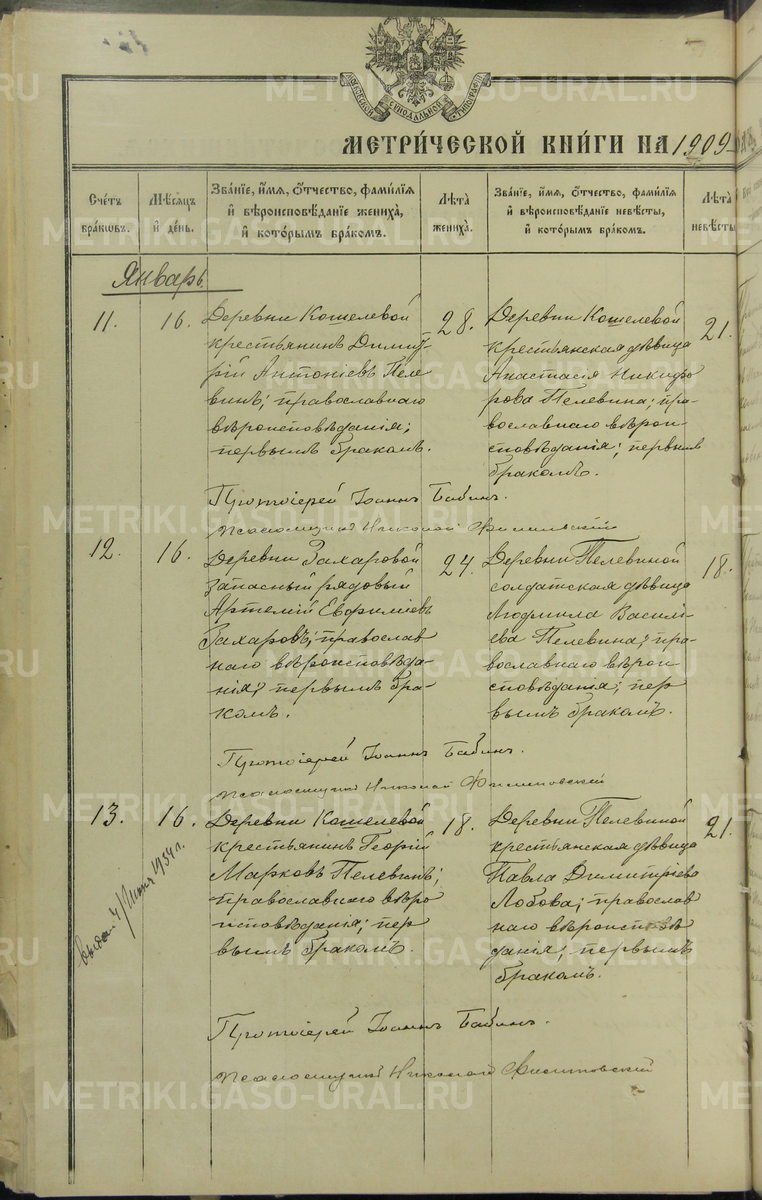 МОСКОВСКОЙ СУНОДАЛЬНОЙ ТИПОГРАФІИ
МЕТРИ́ЧЕСКОЙ КНИ́ГИ НА 1909
Сче́тъ
бра́кωвъ.
Мѣ́сѧцъ
и҆ де́нь.
Зва́нїе, и҆́мѧ, ѻ҆́тчество, фами́лїѧ
и҆ вѣроисповѣ́данїе жениха̀,
и҆ кото́рымъ бра́комъ.
Лѣ́та
жениха̀.
Зва́нїе, и҆́мѧ, ѻ҆́тчество, фами́лїѧ
и҆ вѣроисповѣ́данїе невѣ́сты,
и҆ кото́рымъ бра́комъ.
Лѣ́та
невѣ́сты
Январь.
11.
16.
Деревни Кошелевой
крестьянинъ Димит-
рій Антоніевъ Пеле
винъ; православнаго
вѣроисповѣданія;
первымъ бракомъ.
28.
Деревни Кошелевой
крестьянская дѣвица
Анастасія Никифо
рова Пелевина; пра-
вославнаго вѣрои-
сповѣданія; первымъ
бракомъ.
21.
Протоіерей Іоаннъ Бабинъ.
Псаломщикъ Николай
12.
16.
Деревни Захаровой
запасный рядовый
Артемій Евфиміевъ
Захаровъ; православ
наго вѣроисповѣда-
нія; первымъ бра-
комъ.
24.
Деревни Пелевиной
солдатская дѣвица
Людмила Василь-
ева Пелевина; пра-
вославнаго вѣрои-
сповѣданія; пер
вымъ бракомъ.
18.
Протоіерей Іоаннъ Бабинъ.
Псаломщикъ Николай
13.
16.
Деревни Кошелевой
крестьянинъ Георгій
Марковъ Пелевинъ;
православнаго вѣро
исповѣданія; пер
вымъ бракомъ.
18.
Деревни Пелевиной
крестьянская дѣвица
Павла Димитріева
Лобова; православ
наго вѣроисповѣ
данія; первымъ
бракомъ.
21.
1934 г.
Протоіерей Іоаннъ Бабинъ.
Псаломщикъ Николай
METRIKI.GASO-URAL.RU